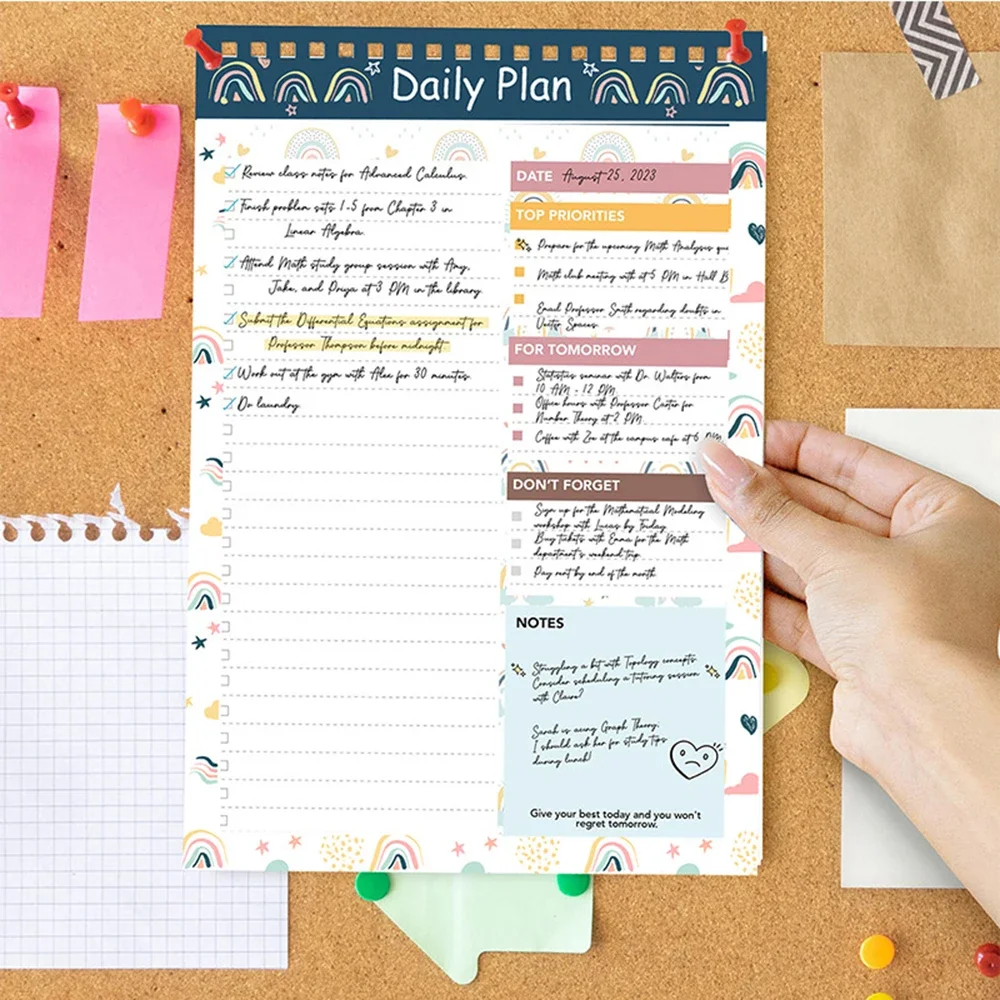 Daily Plan
Review class notes for Advanced Calculus.
Finish problem sets 1-5 from Chapter 3 in
Linear Algebra.
Attend Math study group session with Amy,
Jake, and Priya at 3 PM in the library.
Submit the Differential Equations assignment for
Professor Thompson before midnight.
Work out at the gym with Alex for 30 minutes.
Do laundry.
DATE August 25, 2023
TOP PRIORITIES
Prepare for the upcoming Math Analysis qu
Math club meeting with at 5 PM in Hall B
Email Professor Smith regarding doubts in
Vector Spaces.
FOR TOMORROW
Statistics seminar with Dr. Walters from
10 AM - 12 PM
Office hours with Professor Carter for
Number Theory at 2 PM
Coffee with Zoe at the campus cafe at 6 PM
DON'T FORGET
Sign up for the Mathematical Modeling
workshop with Lucas by Friday
Buy tickets with Emma for the Math
department's weekend trip
Pay rent by end of the month
NOTES
Struggling a bit with Topology concepts.
Consider scheduling a tutoring session
with Claire?
Sarah is acing Graph Theory;
I should ask her for study tips
during lunch!
Give your best today and you won't
regret tomorrow.